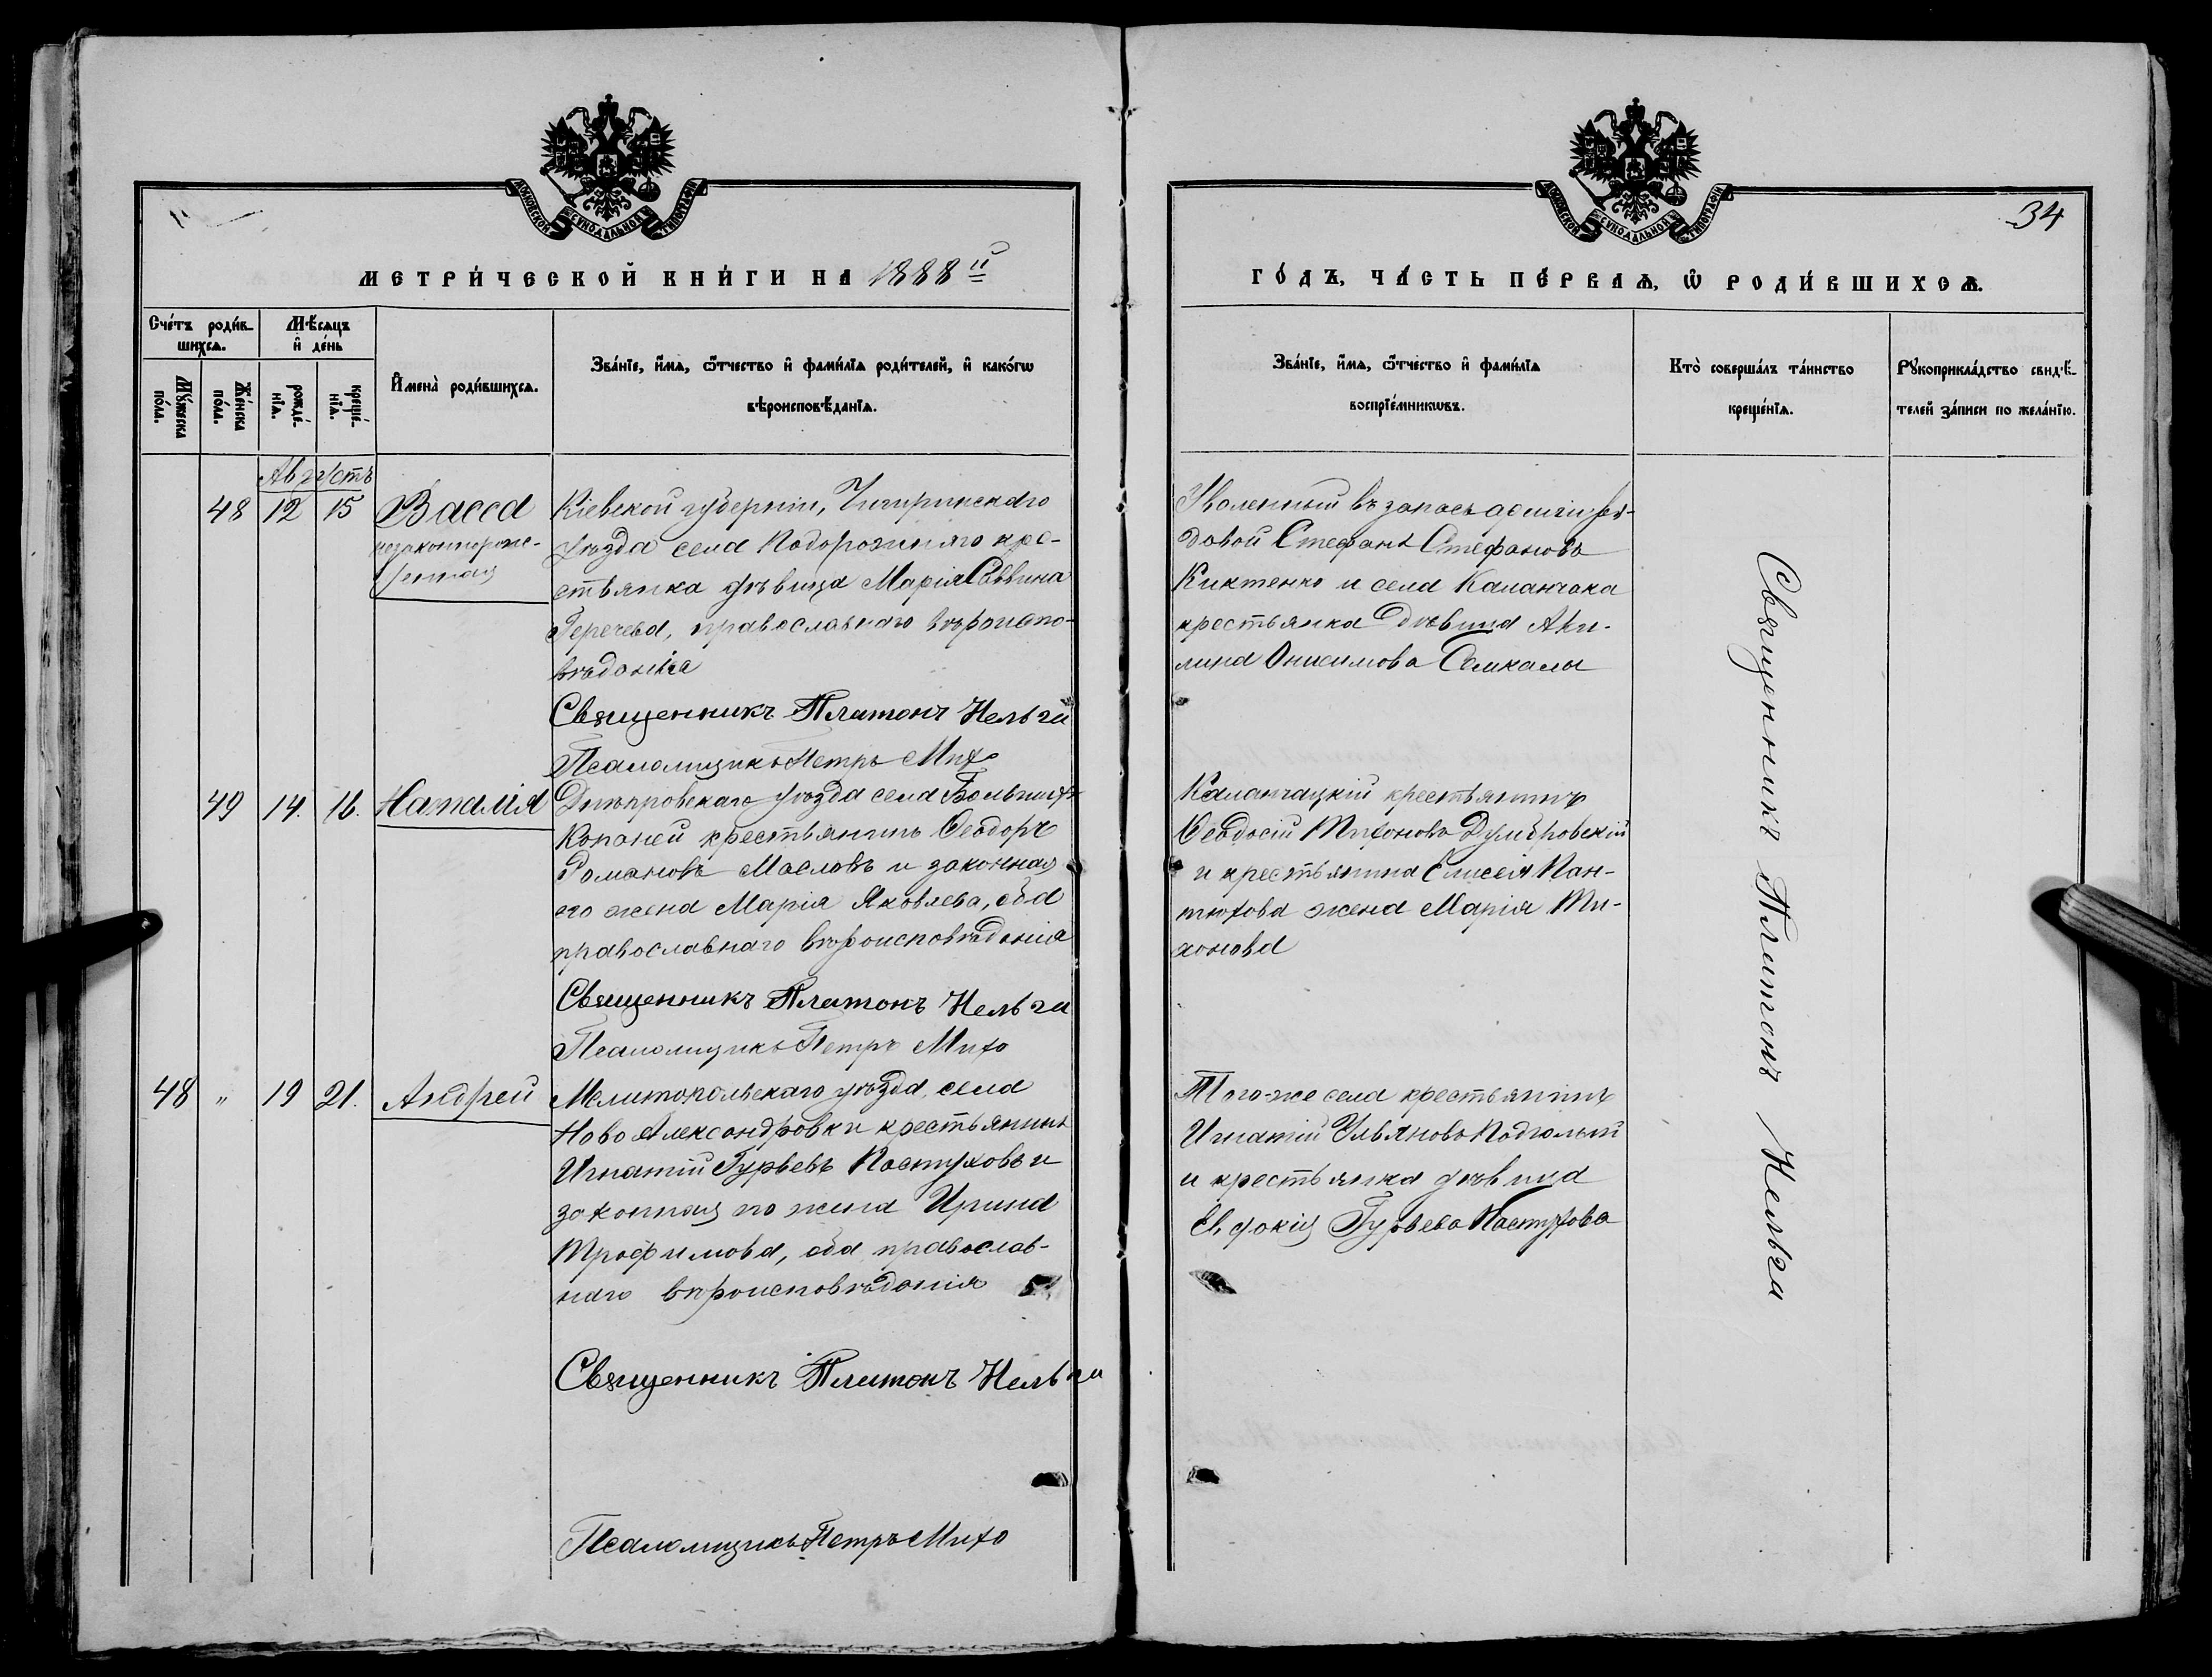 МОСКОВСКОЙ СѴНОДАЛЬНОЙ ТИПОГРАФІИ
МОСКОВСКОЙ СѴНОДАЛЬНОЙ ТИПОГРАФІИ
34
МЕТРИ́ЧЕСКОЙ КНИ́ГИ НА 1888й
ГО́ДЪ, ЧА́СТЬ ПЕ́РВАѦ, Ѿ РОДИ́ВШИХСѦ.
Сче́тъ роди́в-
шихсѧ.
Мѣ́сѧцъ
и҆ де́нь
Мꙋ́жеска
по́ла.
Же́нска
по́ла.
рожде́-
нїѧ.
креще́-
нїѧ.
И҆мена̀ роди́вшихсѧ.
Зва́нїе, и҆́мѧ, ѻ҆́тчество и҆ фами́лїѧ роди́телей, и҆ како́гѡ
вѣроисповѣ́данїѧ.
Зва́нїе, и҆́мѧ, ѻ҆́тчество и҆ фами́лїѧ
воспрїе́мникѡвъ.
Кто̀ соверша́лъ та́инство
креще́нїѧ.
Рꙋкоприкла́дство свидѣ́-
телей за́писи по жела́нїю.
Августъ
48 12 15 Васса
незаконнорож-
денная
Кіевской губерніи, Чигиринскаго
уѣзда села Подорожняго кре-
стьянка дѣвица Марія Саввина
православнаго вѣроиспо-
вѣданія
Священникъ Платонъ Нельга
Псаломщикъ Петръ Михо
Уволенный въ запасъ арміи ря-
довой Стефанъ Стефановъ
Киктенко и села Каланчака
крестьянка дѣвица Аки-
лина Онисимова
49 14. 16. Наталія
Днѣпровскаго уѣзда села Большихъ
Копаней крестьянинъ Ѳеодоръ
Романовъ Масловъ и законная
его жена Марія Яковлева, оба
православнаго вѣроисповѣданія
Священникъ Платонъ Нельга
Псаломщикъ Петръ Михо
Каланчацкій крестьянинъ
Ѳеодосій Тихоновъ Думбровскій
и крестьянина Елисея Пан-
тюхова жена Марія Ти-
хонова
48 " 19 21. Андрей
Мелитопольскаго уѣзда села
Ново Александровки крестьянинъ
Игнатій Гурьевъ Пастуховъ и
законная его жена Ирина
Трофимова, оба православ-
наго вѣроисповѣданія
Священникъ Платонъ Нельга
Псаломщикъ Петръ Михо
Того-же села крестьянинъ
Игнатій Ульяновъ
и крестьянка дѣвица
Евдокія Гурьева Пастухова
Священникъ Платонъ Нельга